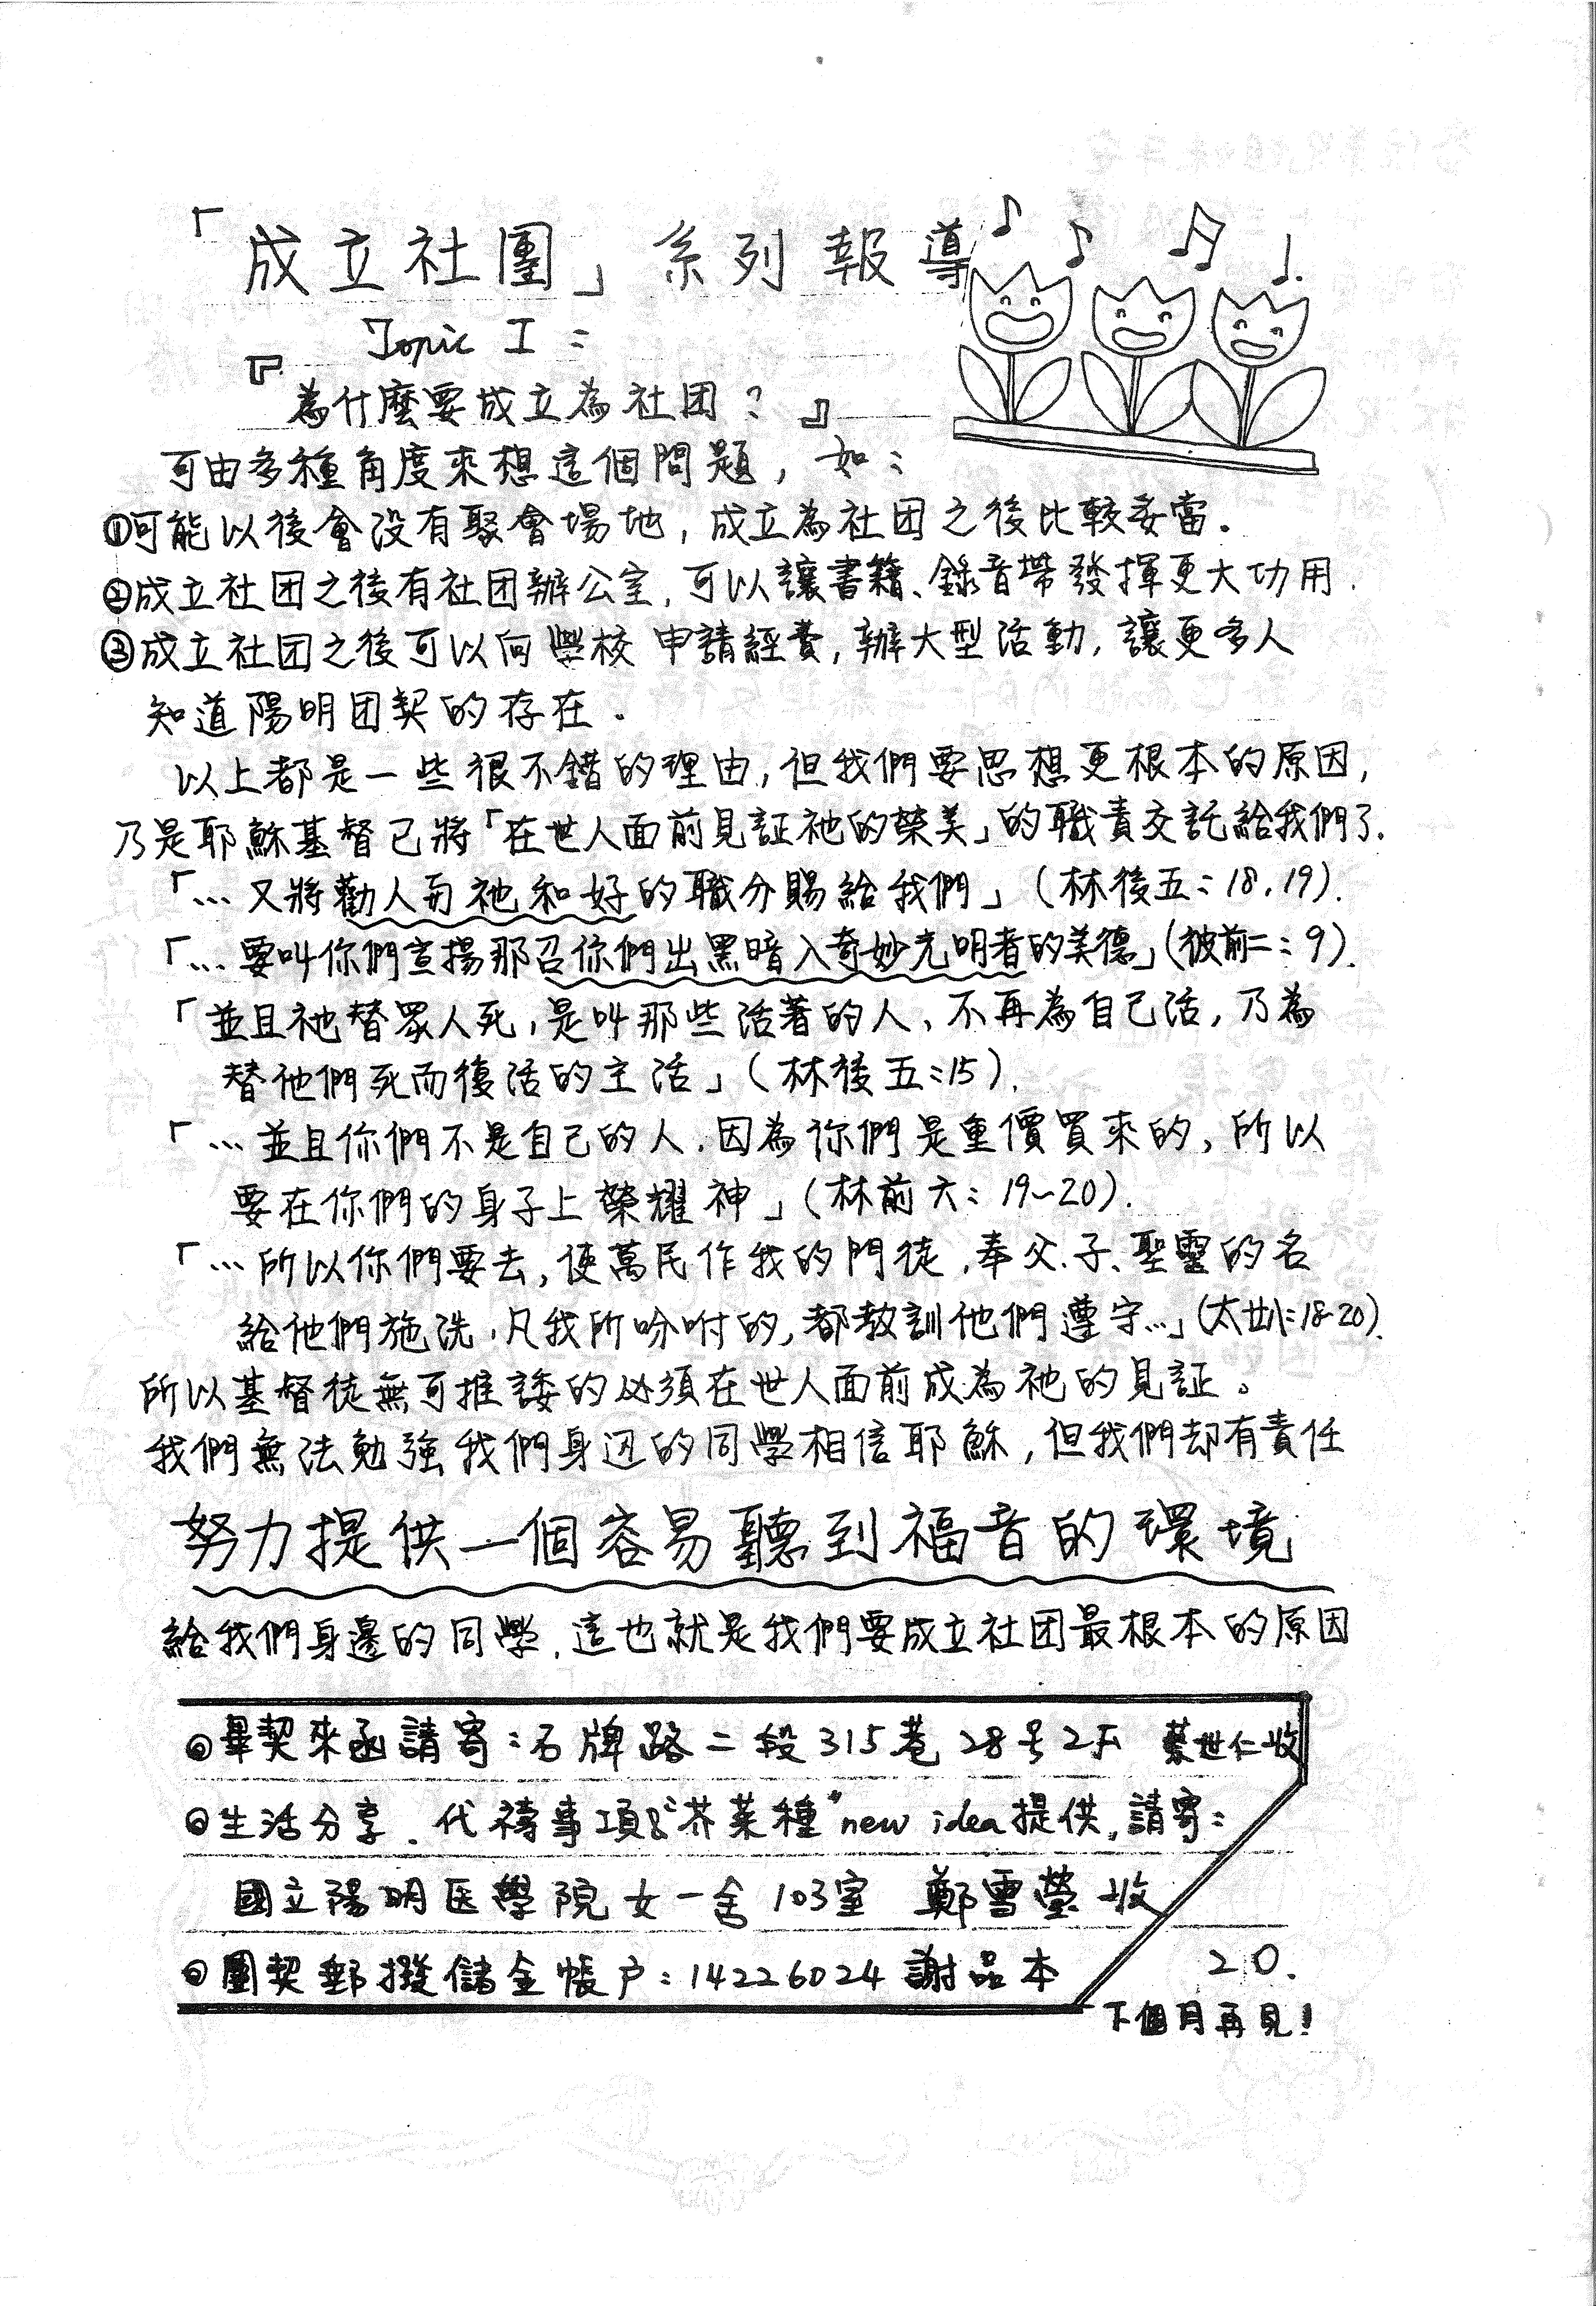 「成立社團」系列報導
Topic I：
『為什麼要成立為社団？』
可由多種角度來想這個問題，如：
①可能以後會沒有聚會場地，成立為社団之後比較妥當。
②成立社団之後有社団辦公室，可以讓書籍、錄音帶發揮更大功用．
③成立社団之後可以向學校申請經費，辦大型活動，讓更多人
知道陽明団契的存在．
以上都是一些很不錯的理由，但我們要思想更根本的原因，
乃是耶穌基督已將「在世人面前見証祂的榮美」的職責交託給我們了．
「…又將勸人与祂和好的職分賜給我們」（林後五：18，19）．
「…要叫你們宣揚那召你們出黑暗入奇妙光明者的美德」（彼前二：9）．
「並且祂替眾人死，是叫那些活著的人、不再為自己活，乃為
替他們死而復活的主活」（林後五：15）．
「…並且你們不是自己的人．因為你們是重價買來的，所以
要在你們的身子上榮耀神」（林前六：19~20）．
「…所以你們要去，使萬民作我的門徒，奉父．子、聖靈的名
給他們施洗，凡我所吩咐的，都教訓他們遵守…」（太廿八：18-20）．
所以基督徒無可推諉的必須在世人面前成為祂的見証。
我們無法勉強我們身辺的同學相信耶穌，但我們却有責任
努力提供一個容易聽到福音的環境
給我們身邊的同學．這也就是我們要成立社団最根本的原因
◎畢契來函請寄：石牌路二段315巷28号2F 蔡世仁收
◎生活分享．代禱事項＆“芥菜種”new idea提供，請寄：
國立陽明医學院女一舍103室 鄭雪瑩收
◎團契郵撥儲金帳戶：14226024 謝品本
20．
下個月再見！